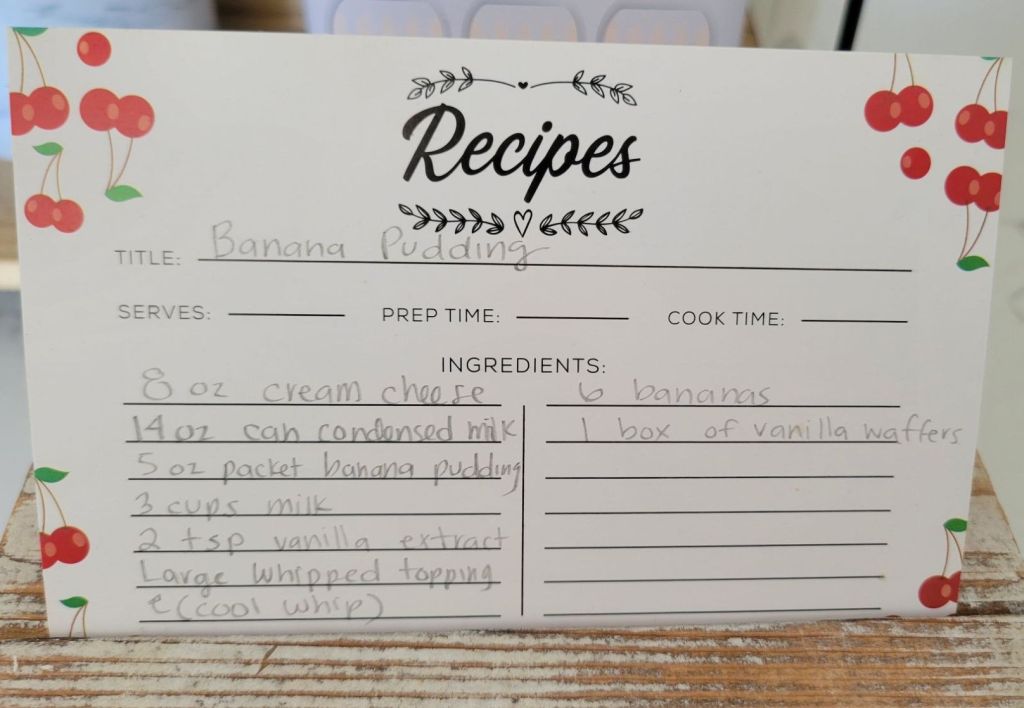 Recipes
TITLE: Banana Pudding
SERVES: PREP TIME: COOK TIME:
INGREDIENTS:
8 oz cream cheese
14 oz can condensed milk
5 oz packet banana pudding
3 cups milk
2 tsp vanilla extract
Large whipped topping
(cool whip)
6 bananas
1 box of vanilla waffers